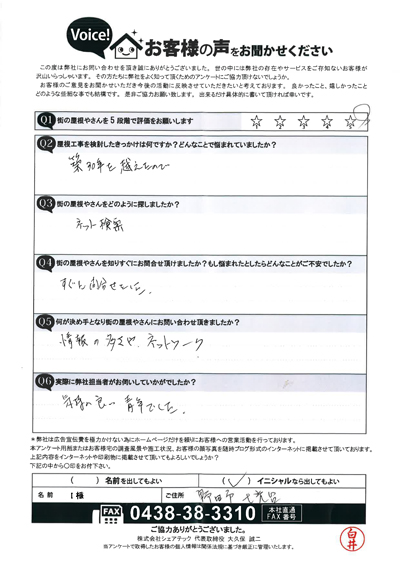 Voice!
お客様の声をお聞かせください
この度は弊社にお問い合わせを頂き誠にありがとうございました。世の中には弊社の存在やサービスをご存知ないお客様が
沢山いらっしゃいます。その方たちに弊社をよく知って頂くためのアンケートにご協力頂けないでしょうか。
お客様のご意見をお聞かせいただき今後の活動に反映させていただきたいと考えております。良かったこと、嬉しかったこと
どのような些細な事でも結構です。是非ご協力お願い致します。出来るだけ具体的に書いて頂ければ幸いです。
Q1 街の屋根やさんを5段階で評価をお願いします ☆ ☆ ☆ ☆ ☆
Q2 屋根工事を検討したきっかけは何ですか？どんなことで悩まれていましたか？
築30年を越えたので
Q3 街の屋根やさんをどのように探しましたか？
ネット検索
Q4 街の屋根やさんを知りすぐにお問合せ頂けましたか？もし悩まれたとしたらどんなことがご不安でしたか？
すぐに問合せをした。
Q5 何が決め手となり街の屋根やさんにお問い合わせ頂きましたか？
情報の多さや、ネットワーク
Q6 実際に弊社担当者がお伺いしていかがでしたか？
気持の良い青年でした。
＊弊社は広告宣伝費を極力かけない為にホームページだけを頼りにお客様への営業活動を行っております。
本アンケート用紙またはお客様宅の調査風景や施工状況、お客様の顔写真を随時ブログ形式のインターネットに掲載させて頂いております。
上記内容をインターネットや印刷物に掲載させて頂いてもよろしいでしょうか？
下記の中から〇印をお付下さい。
（　）名前を出してもよい （✓）イニシャルなら出してもよい
名前 I様 ご住所 野田市七光台
FAX 0438-38-3310 本社直通 FAX番号
ご協力ありがとうございました。
株式会社シェアテック 代表取締役 大久保 誠二
当アンケートで取得したお客様の個人情報は関係法規に基づき厳正に管理いたします。
白井